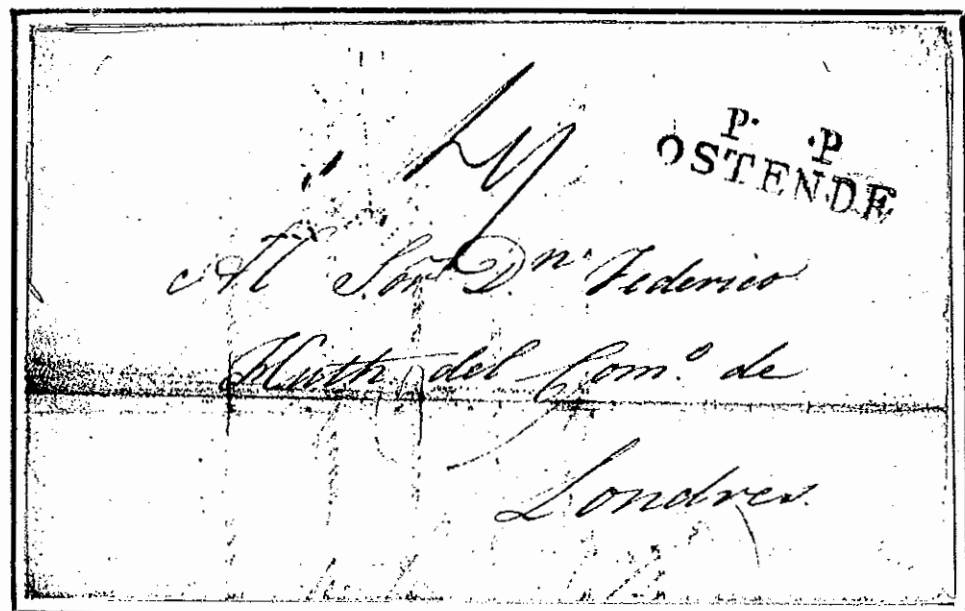 P. .P
OSTENDE
Al Sor. Dn. Federico
Huth del Como. de
Londres